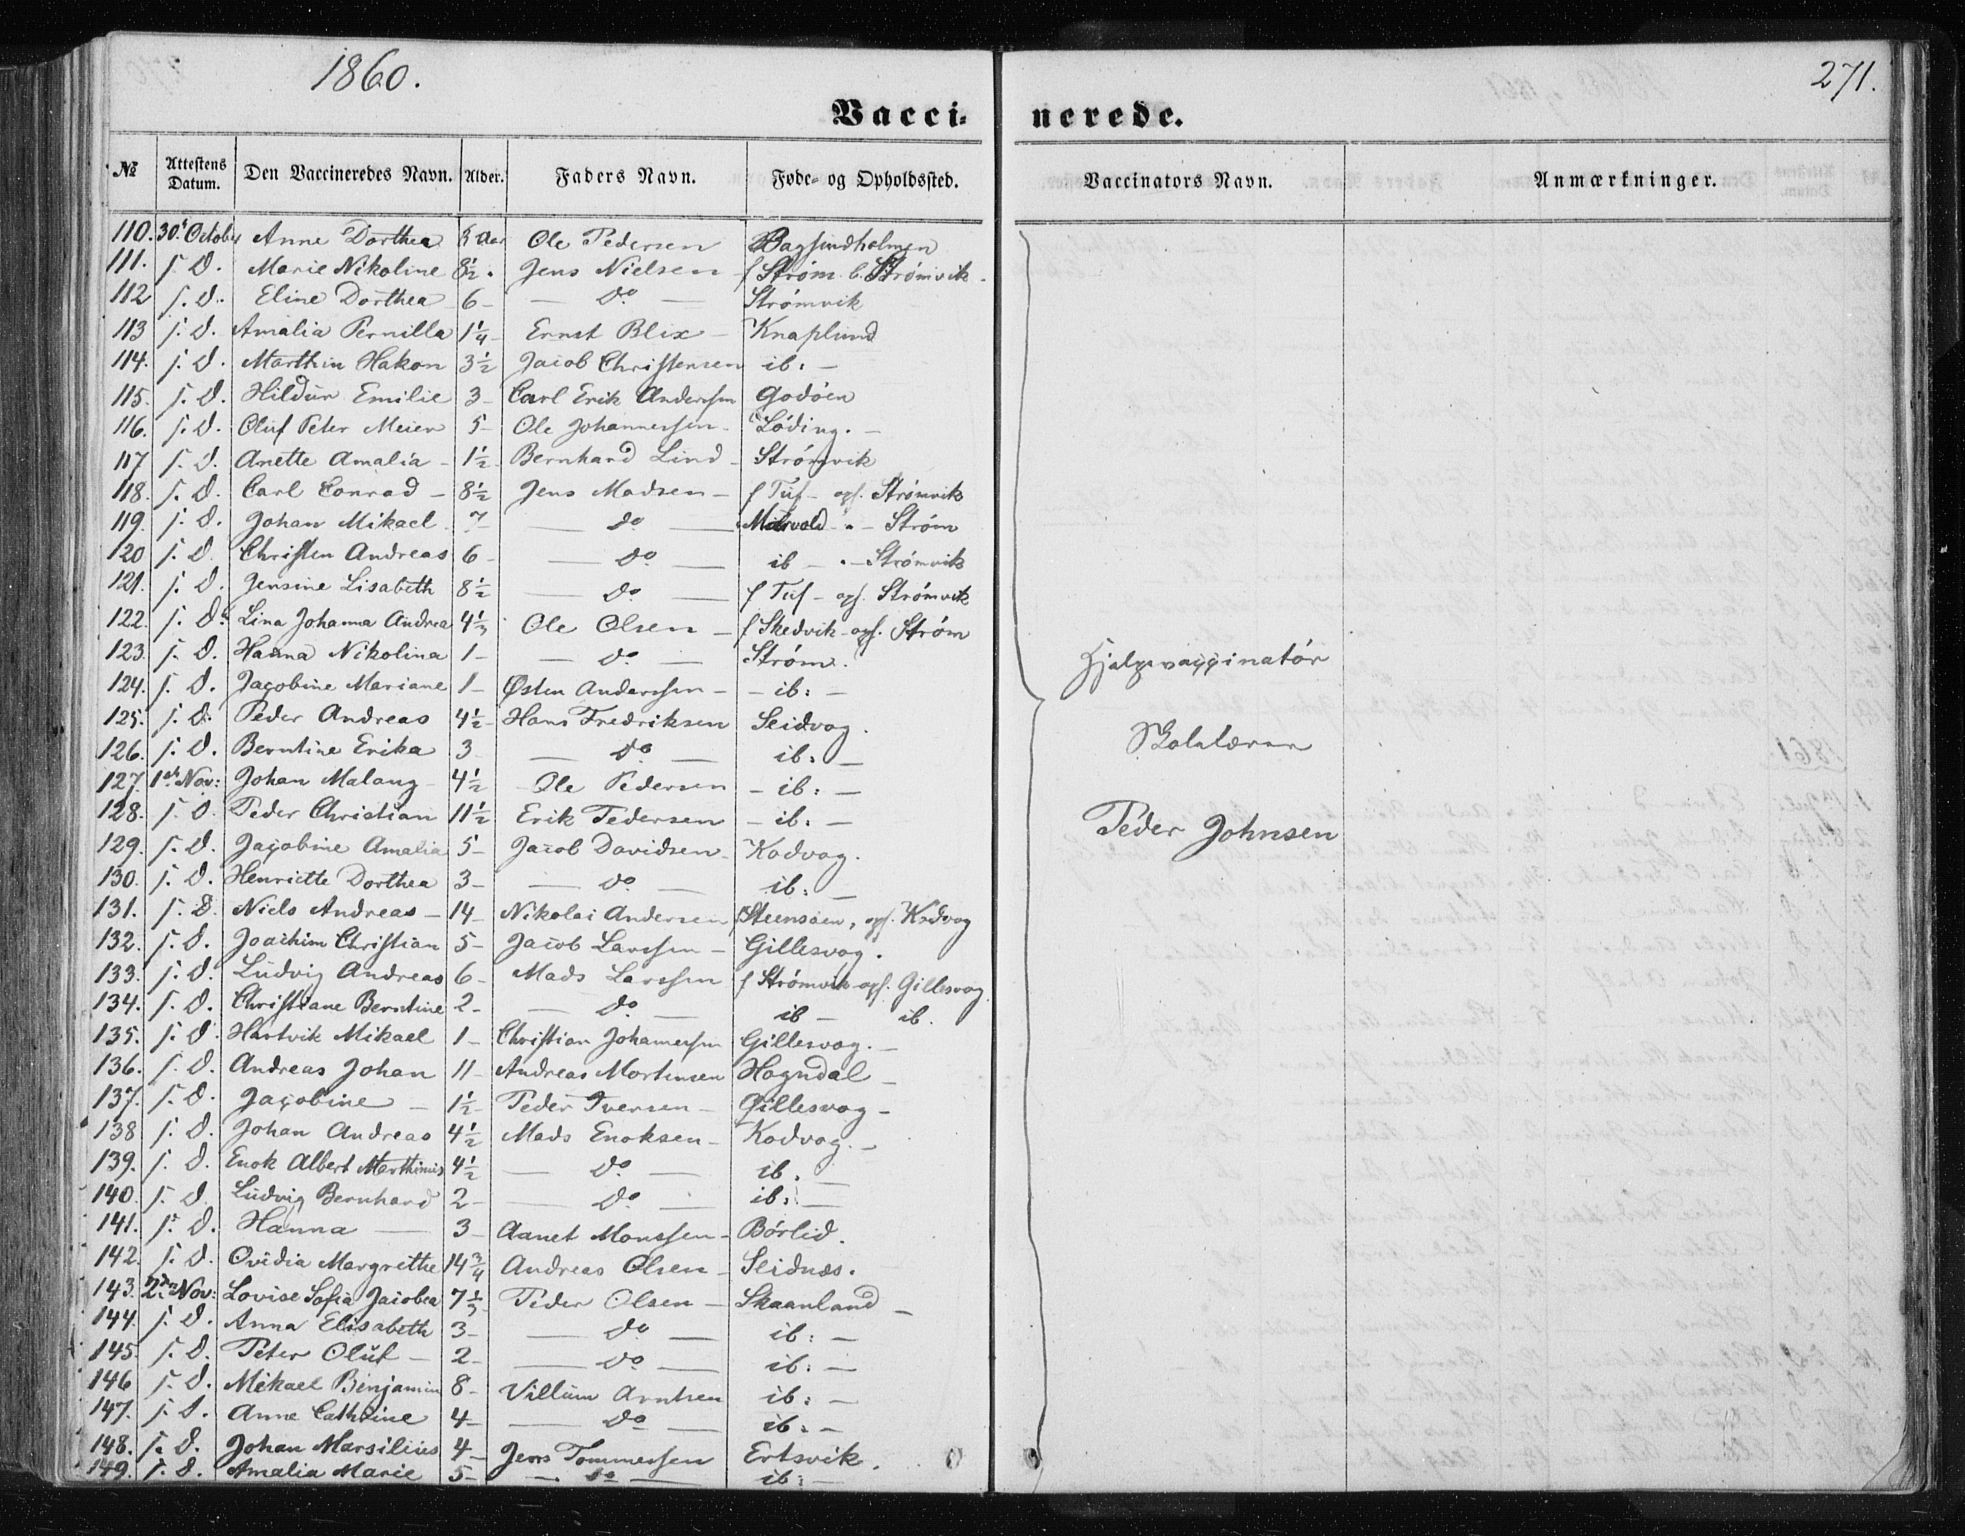 1860.
271.
Vaccinerede.
№ Attestens Datum. Den Vaccineredes Navn. Alder. Faders Navn. Føde- og Opholdssted. Vaccinators Navn. Anmærkninger.
110. 30t October Anne Dorthea 5 Aar Ole Pedersen
111. s. D. Marie Nikoline 8½ Jens Nielsen f Strøm b. Strømvik
112 s. D. Eline Dorthea 6 – do – Strømvik
113 s. D. Amalia Pernilla 1¼ Ernst Blix – Knaplund
114. s. D. Marthin Hakon 3½ Jacob Christensen ib: –
115. s. D. Hildur Emilie 3 – Carl Erik Anderssen Godøen
116. s. D. Oluf Peter Meier 5 – Ole Johannessen – Løding. –
117 s. D. Anette Amalia – 1½ Bernhard Lind – Strømvik
118. s. D. Carl Conrad – 8½ Jens Madsen – f Tuf – opf. Strømvik
119. s. D. Johan Mikael 7 – do – – Strøm
120 s. D. Christen Andreas 6 – do – ib – " – Strømvik
121. s. D. Jensine Lisabeth 8½ – do – f Tuf – opf. Strømvik
122. s. D. Lina Johanna Andrea 4⅓ Ole Olsen – f Skedvik – opf. Strøm
123. s. D. Hanna Nikolina 1 – do. – Strøm.
124. s. D. Jacobine Mariane 1 – Østen Anderssen – – ib: –
125. s. D. Peder Andreas 4½ Hans Fredriksen Seidvag.
126. s. D. Berntine Erika 3 – do – ib. –
127. 1st Nov: Johan Malang 4½ Ole Pedersen – ib: –
128. s. D. Peder Christian 11½ Erik Pedersen – ib: –
129. s. D. Jacobine Amalia 5 – Jacob Davidsen – Kodvag.
130. s. D. Henriette Dorthea 3 – do – ib: –
131. s. D. Niels Andreas – 14 – Nikolai Andersen f Steensøen, opf. Kodvag
132. s. D. Joachim Christian 5 – Jacob Larssen – Gillesvag.
133. s. D. Ludvig Andreas 6 – Mads Larssen f Strømvik opf. Gillesvag
134. s. D. Christiane Berntine 2 – do. – ib – ib.
135. s. D. Hartvik Mikael 1 – Christian Johannessen Gillesvag. –
136. s. D. Andreas Johan 11 – Andreas Mortensen Hogndal –
137. s. D. Jacobine – 1½ Peder Iversen – Gillesvag –
138 s. D. Johan Andreas 4½ Mads Enoksen – Kodvag. –
139. s. D. Enok Albert Marthinus 4½ – do – ib. –
140. s. D. Ludvig Bernhard 2 – do – ib: –
141. s. D. Hanna – 3 – Aanet Monssen – Børlid.
142. s. D. Ovidia Margrethe 14¾ Andreas Olsen – Seidnæs.
143. 2den Nov: Lovise Sofia Jacobea 7⅓ Peder Olsen – Skaanland –
144. s. D. Anna Elisabeth 3 – do – ib: –
145. s. D. Peter Oluf – 2 – do – ib: –
146 s. D. Mikael Benjamin 8 – Villum Arntsen ib: –
147. s. D. Anne Cathrine 4 – do – ib: –
148. s. D. Johan Marsilius 4 – Jens Tommessen Ertsvik.
149. s. D. Amalia Marie 5 – do – ib: –
Hjelpevaccinatør
Skolelærer
Peder Johnsen